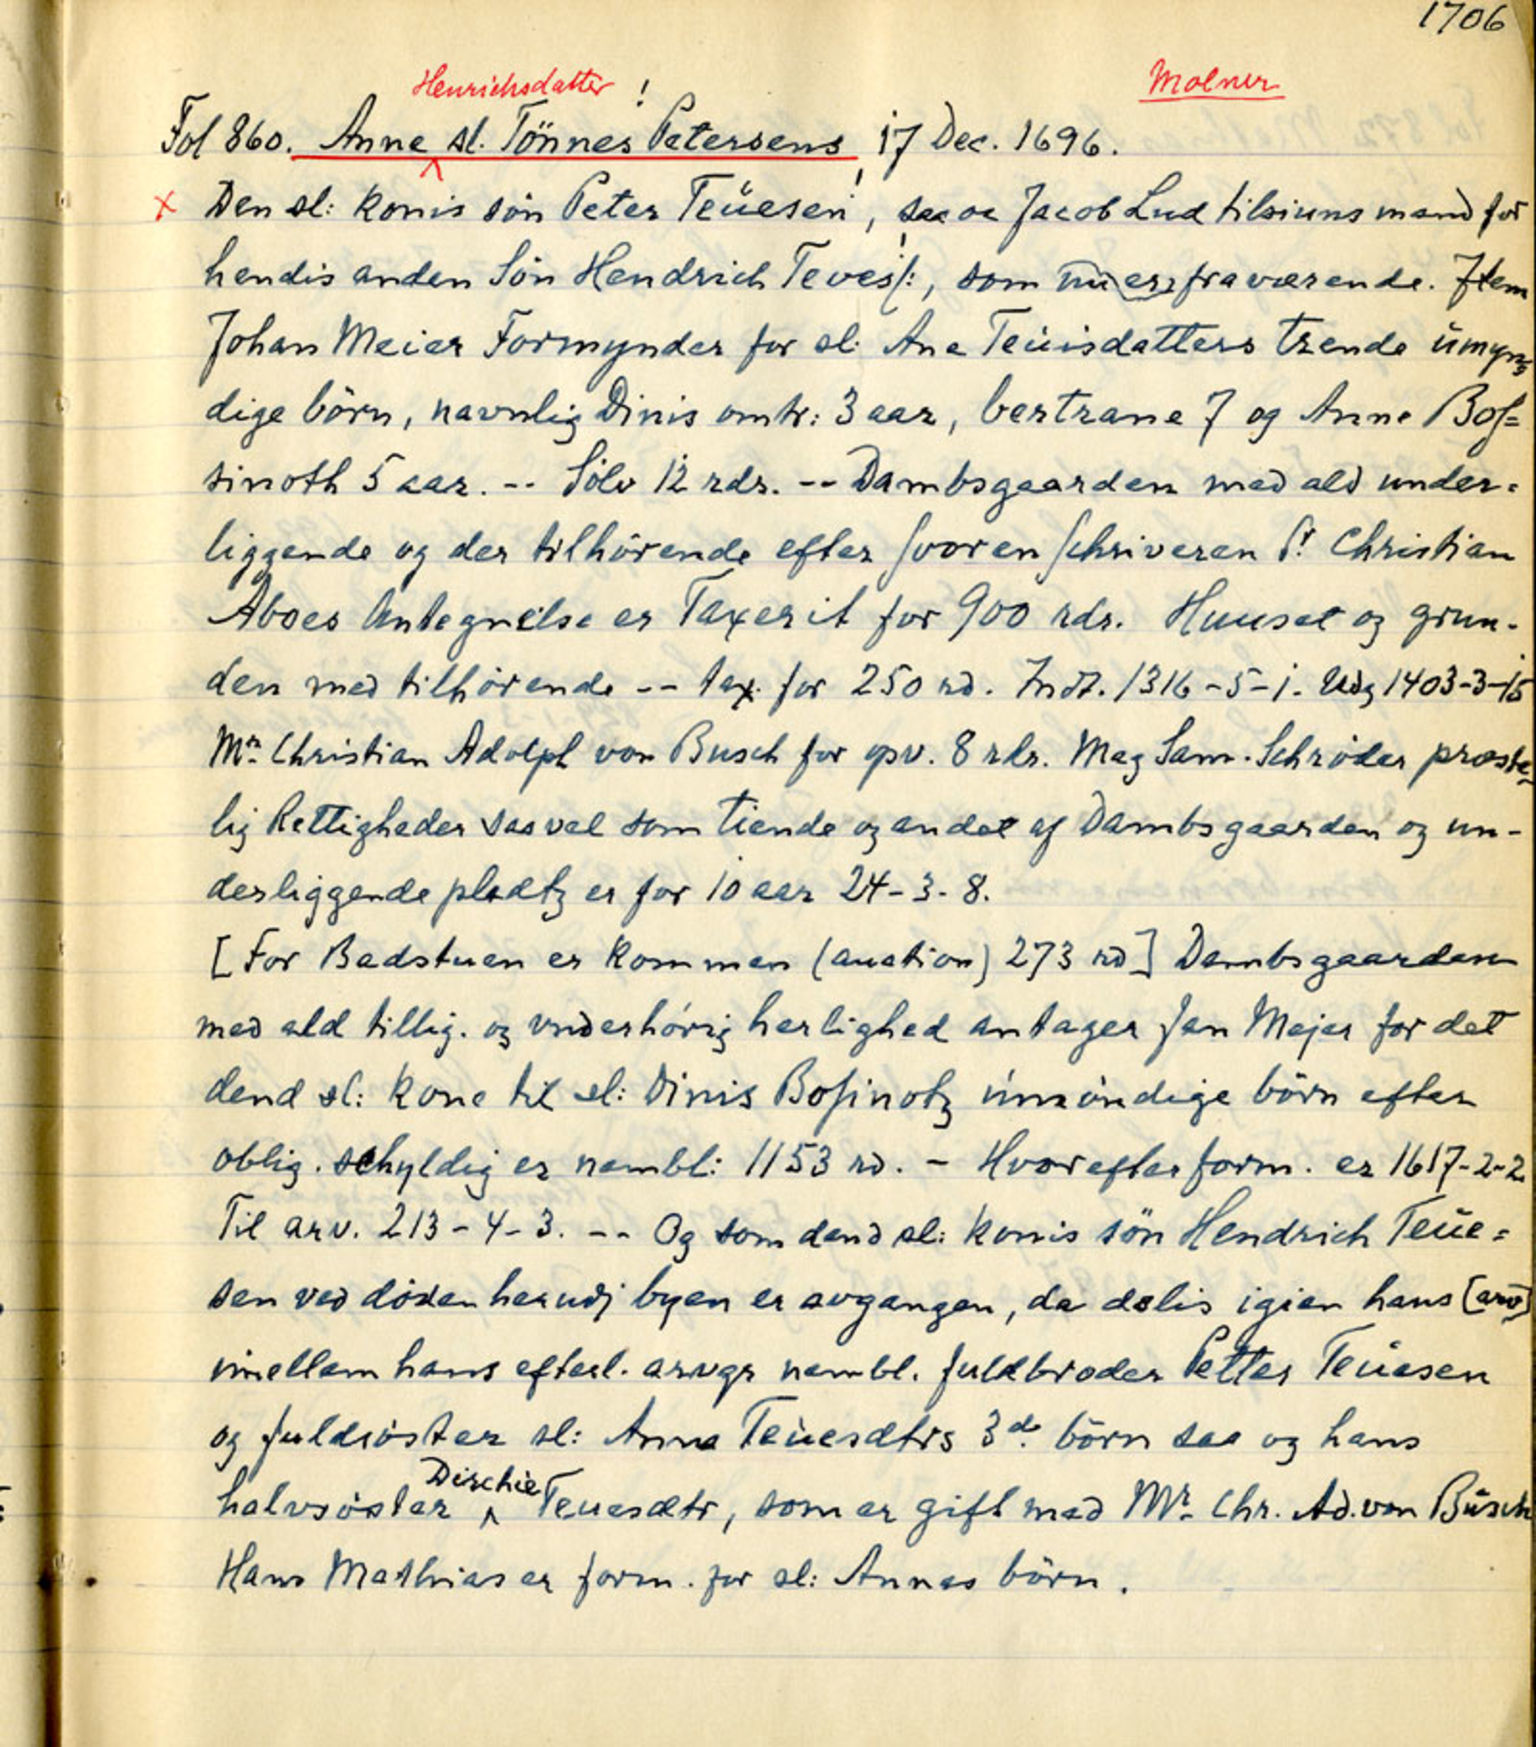 1706
Henrichsdatter ! Molner
Fol 860. Anne sl. Tönnes Petersens, 17 Dec. 1696.
x Den sl: konis søn Peter Teüesen!, saa oc Jacob Lud tilsiuns mand for
hendis anden Søn Hendrich Teves!/:, som nu er fraværende. Item
Johan Meier Formynder for sl: Ane Teüisdatters trende ümyn=
dige börn, navnlig Dinis omtr: 3 aar, bertrane 7 og Anne Boſ=
sinoth 5 aar. -- Sölv 12 rdr. -- Dambsgaarden med ald under=
liggende og der tilhörende efter ſvorenſchriveren Sr. Christian
Aboes Antegnelse er Taxerit for 900 rdr. Huuset og grun-
den med tilhörende -- tax. for 250 rd. Indt. 1316-5-1. Udg 1403-3-15
Mr. Christian Adolph von Busch for opv. 8 rdr. Mag Sam. Schröder præste=
lig Rettigheder saavel som tiende og andet af Dambsgaarden og un-
derliggende pladtz er for 10 aar 24-3-8.
[For Badstuen er kommen (auction) 273 rd] Dambsgaarden
med ald tillig. og vnderhörig herlighed antager Jan Mejer for det
dend sl: kone til sl: Dinis Boſinotz ümöndige börn efter
oblig. schyldig er nambl: 1153 rd. - Hvorefter form. er 1617-2-2
Til arv. 213-4-3. -- Og som dend sl: konis sön Hendrich Teüe=
sen ved döden herudj byen er avgangen, da delis igien hans [arv]
imellem hans efterl. arvgr nambl. fuldbroder Petter Teüesen
og fuldsöster sl: Anna Teüesdtrs 3de börn saa og hans
halvsöster Dirchie Teuesdtr, som er gift med Mr. Chr. Ad. von Büsch
Hans Mathias er form. for sl: Annes börn.